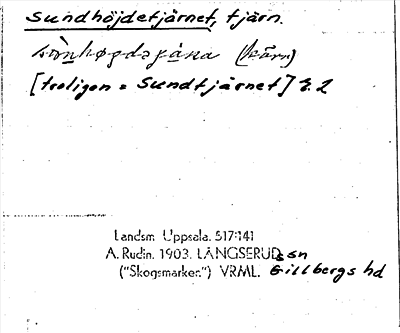 Sundhöjdetjärnet, tjärn.
(tjärn)
[troligen = Sundtjärnet] E. 2
Landsm Uppsala. 517:141
A. Rudin. 1903. LÅNGSERUDs sn
("Skogsmarker.") VRML. Gillbergs hd